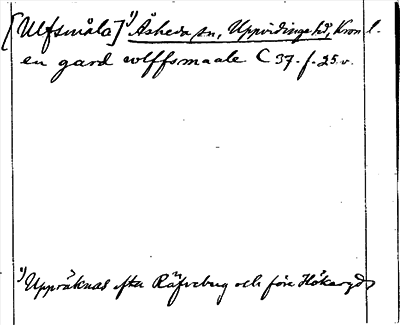 [Ulfsmåla]¹⁾ Åsheda sn, Uppvidinge hd, Kron. l.
en gard wlffsmaale C 37. f. 25 v.
¹⁾ Uppräknas efter Räfveberg och före Hökaryd